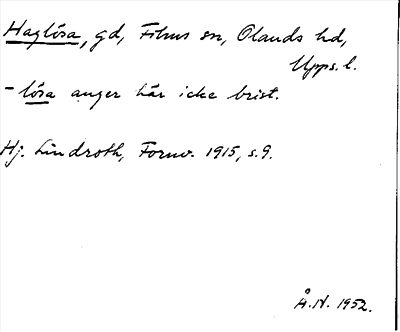 Haglösa, gd, Films sn, Olands hd,
Upps. l.
- lösa anger här icke brist.
Hj. Lindroth, Fornv. 1915, s. 9.
Å. N. 1952.